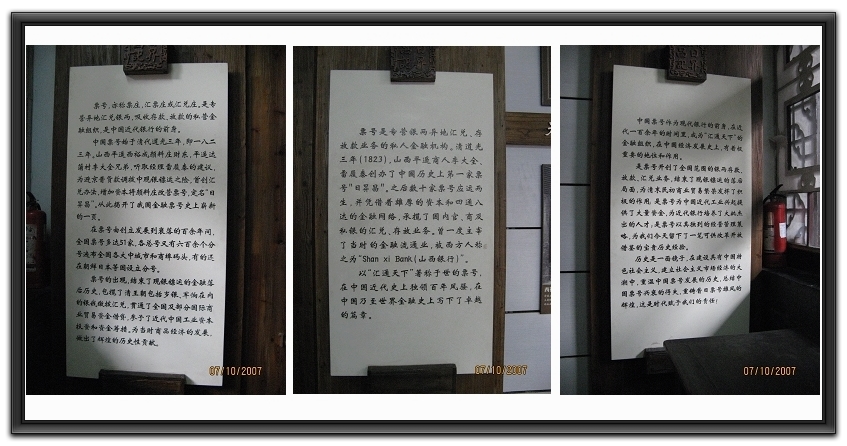 票号,亦称票庄,汇票庄或汇兑庄。是专
营异地汇兑银两,吸收存款、放款的私营金
融组织,是中国近代银行的前身。
中国票号始于清代道光三年,即一八二
三年。山西平遥西裕成颜料庄财东,平遥达
蒲村李大全兄弟,听取经理雷履泰的建议,
为避京晋货款调拨中现银镖运之险,首创汇
兑办法,增加资本将颜料庄改营票号,定名“日
昇昌”。从此揭开了我国金融票号史上崭新
的一页。
在票号由创立发展到衰落的百余年间,
全国票号多达51家,各总号又有六百余个分
号流布全国各大中城市和商埠码头,有的还
在朝鲜日本等国设立分号。
票号的出现,结束了现银镖运的金融落
后历史,包揽了清王朝包括步银、军饷在内
的银钱缴拨汇兑,贯通了全国及部分国际商
业贸易资金借贷,参予了近代中国工业资本
投资和资金筹措。为当时商品经济的发展,
做出了辉煌的历史性贡献。
07/10/2007
票号是专营银两异地汇兑、存
放款业务的私人金融机构。清道光
三年(1823),山西平遥商人李大全、
雷履泰创办了中国历史上第一家票
号“日昇昌”。之后数十家票号应运而
生,并凭借着雄厚的资本和四通八
达的金融网络,承揽了国内官、商及
私银的汇兑、存放业务。曾一度主宰
了当时的金融流通业,被西方人称
之为“Shan xi Bank(山西银行)”。
以“汇通天下”著称于世的票号,
在中国近代史上独领百年风骚,在
中国乃至世界金融史上写下了卓越
的篇章。
07/10/2007
中国票号作为现代银行的前身,在近
代一百余年的时间里,成为“汇通天下”的
金融组织,在中国经济发展史上,有着极
重要的地位和作用。
是票号开创了全国范围的银两存款、
放款、汇兑业务,结束了现银镖运的落后
局面,为清末民初商业贸易繁荣发挥了积
极的作用;是票号为中国近代工业兴起提
供了大量资金,为近代银行培养了大批杰
出的人才;是票号以其独到的经营管理策
略,为我们今天留下了一笔可供改革开放
借鉴的宝贵历史经验。
历史是一面镜子,在建设具有中国特
色社会主义,建立社会主义市场经济的大
潮中,重温中国票号发展的历史,总结中
国票号兴衰的得失,重铸昔日票号雄风的
辉煌,这是时代赋于我们的责任!
07/10/2007